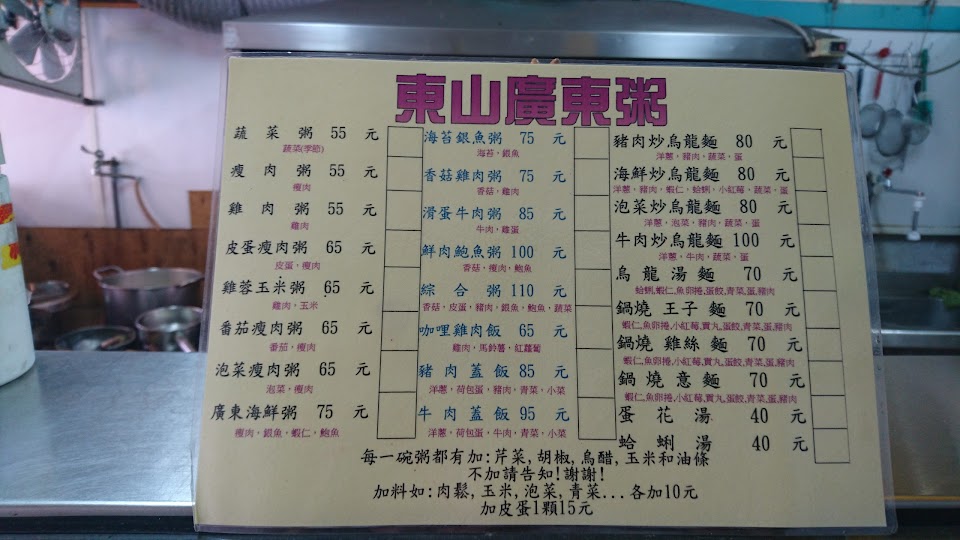 東山廣東粥
蔬菜粥 55 元
蔬菜(季節)
瘦肉粥 55 元
瘦肉
雞肉粥 55 元
雞肉
皮蛋瘦肉粥 65 元
皮蛋，瘦肉
雞蓉玉米粥 65 元
雞肉，玉米
番茄瘦肉粥 65 元
番茄，瘦肉
泡菜瘦肉粥 65 元
泡菜，瘦肉
廣東海鮮粥 75 元
瘦肉，銀魚，蝦仁，鮑魚
海苔銀魚粥 75 元
海苔，銀魚
香菇雞肉粥 75 元
香菇，雞肉
滑蛋牛肉粥 85 元
牛肉，雞蛋
鮮肉鮑魚粥 100 元
香菇，瘦肉，鮑魚
綜合粥 110 元
香菇，皮蛋，豬肉，銀魚，鮑魚，蔬菜
咖哩雞肉飯 65 元
雞肉，馬鈴薯，紅蘿蔔
豬肉蓋飯 85 元
洋蔥，荷包蛋，豬肉，青菜，小菜
牛肉蓋飯 95 元
洋蔥，荷包蛋，牛肉，青菜，小菜
豬肉炒烏龍麵 80 元
洋蔥，豬肉，蔬菜，蛋
海鮮炒烏龍麵 80 元
洋蔥，豬肉，蝦仁，蛤蜊，小紅莓，蔬菜，蛋
泡菜炒烏龍麵 80 元
洋蔥，泡菜，豬肉，蔬菜，蛋
牛肉炒烏龍麵 100 元
洋蔥，牛肉，蔬菜，蛋
烏龍湯麵 70 元
蛤蜊,蝦仁,魚卵捲,蛋餃,青菜,蛋,豬肉
鍋燒王子麵 70 元
蝦仁,魚卵捲,小紅莓,貢丸,蛋餃,青菜,蛋,豬肉
鍋燒雞絲麵 70 元
蝦仁,魚卵捲,小紅莓,貢丸,蛋餃,青菜,蛋,豬肉
鍋燒意麵 70 元
蝦仁,魚卵捲,小紅莓,貢丸,蛋餃,青菜,蛋,豬肉
蛋花湯 40 元
蛤蜊湯 40 元
每一碗粥都有加:芹菜,胡椒,烏醋,玉米和油條
不加請告知!謝謝!
加料如:肉鬆,玉米,泡菜,青菜...各加10元
加皮蛋1顆15元